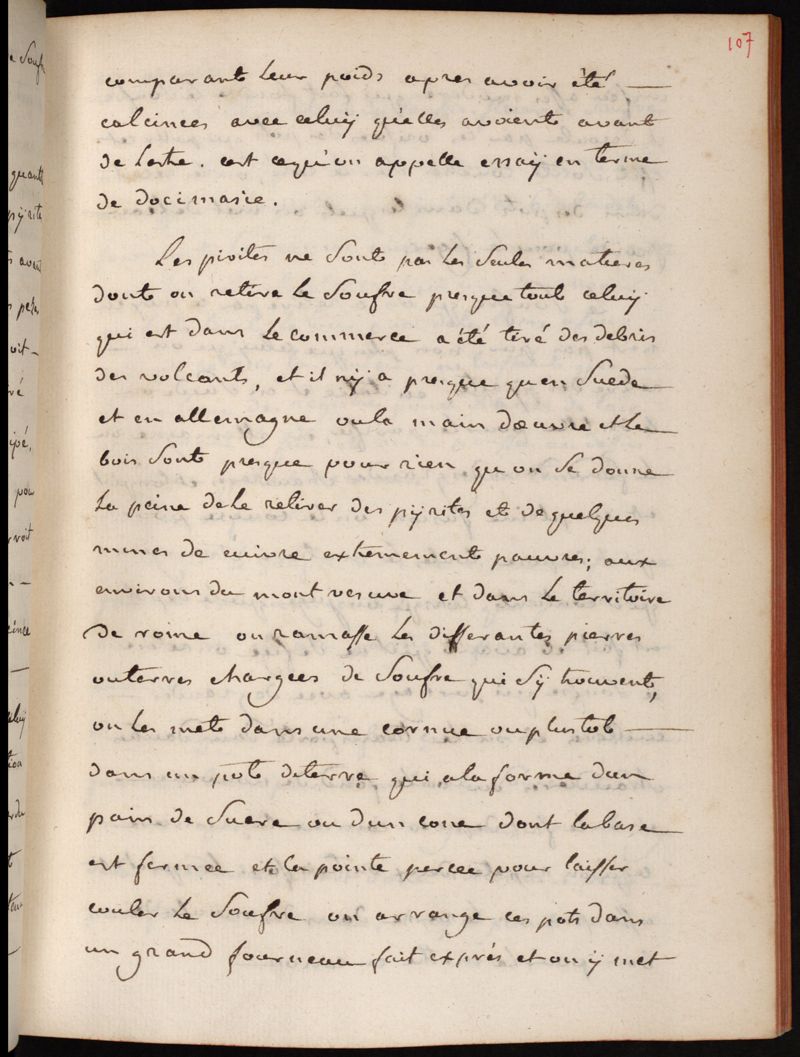 107
comparant leur poids apres avoir été —
calcinees avec celuy qu'elles avoient avant
de lestre. cest cequ'on appelle essay en terme
de docimasie.
Les pirites ne sont pas les seules matieres
dont on retire le soufre presque tout celuy
qui est dans le commerce a été tiré des debris
des volcants, et il n'y a presque qu'en suede
et en allemagne ou la main d'oeuvre et le
bois sont presque pour rien qu'on se donne
la peine de le retirer des pyrites et de quelques
mines de cuivre extremement pauvres; aux
environs du mont vesuve et dans le territoire
de rome on ramasse les differantes pierres
ou terres chargees de soufre qui s'y trouvent,
on les met dans une cornue ou plustot —
dans un pot de terre qui a la forme d'un
pain de sucre ou d'un cone dont la base
est fermee et la pointe percee pour laisser
couler le soufre on arrange ces pots dans
un grand fourneau fait exprés et on y met